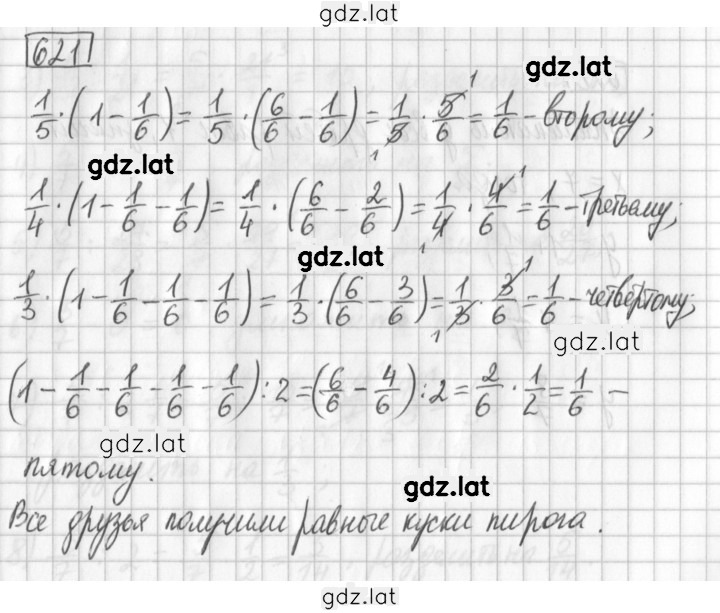 gdz.lat
621
gdz.lat
1/5 · (1 - 1/6) = 1/5 · (6/6 - 1/6) = 1/5 · 5/6 = 1/6 - второму;
gdz.lat
1/4 · (1 - 1/6 - 1/6) = 1/4 · (6/6 - 2/6) = 1/4 · 4/6 = 1/6 - третьему;
gdz.lat
1/3 · (1 - 1/6 - 1/6 - 1/6) = 1/3 · (6/6 - 3/6) = 1/3 · 3/6 = 1/6 - четвертому;
gdz.lat
(1 - 1/6 - 1/6 - 1/6 - 1/6) : 2 = (6/6 - 4/6) : 2 = 2/6 · 1/2 = 1/6 -
gdz.lat
пятому.
gdz.lat
Все друзья получили равные куски пирога.
gdz.lat